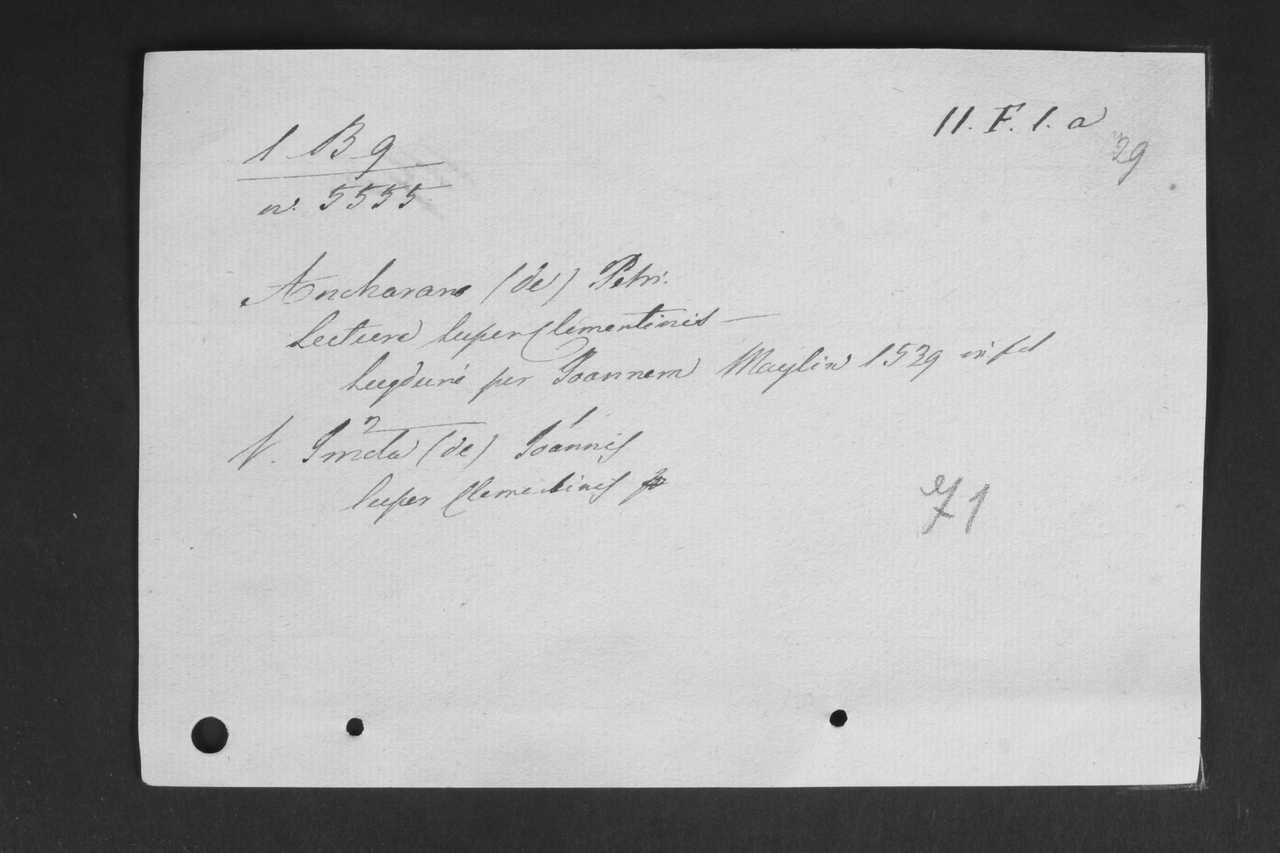 11. F. 1. a
29
1 B 9
n. 5555
Ancharano (de) Petri.
Lectura super Clementinis —
Lugduni per Joannem Maylin 1529 in fol
V. (de) Joannis
super Clementinis
71